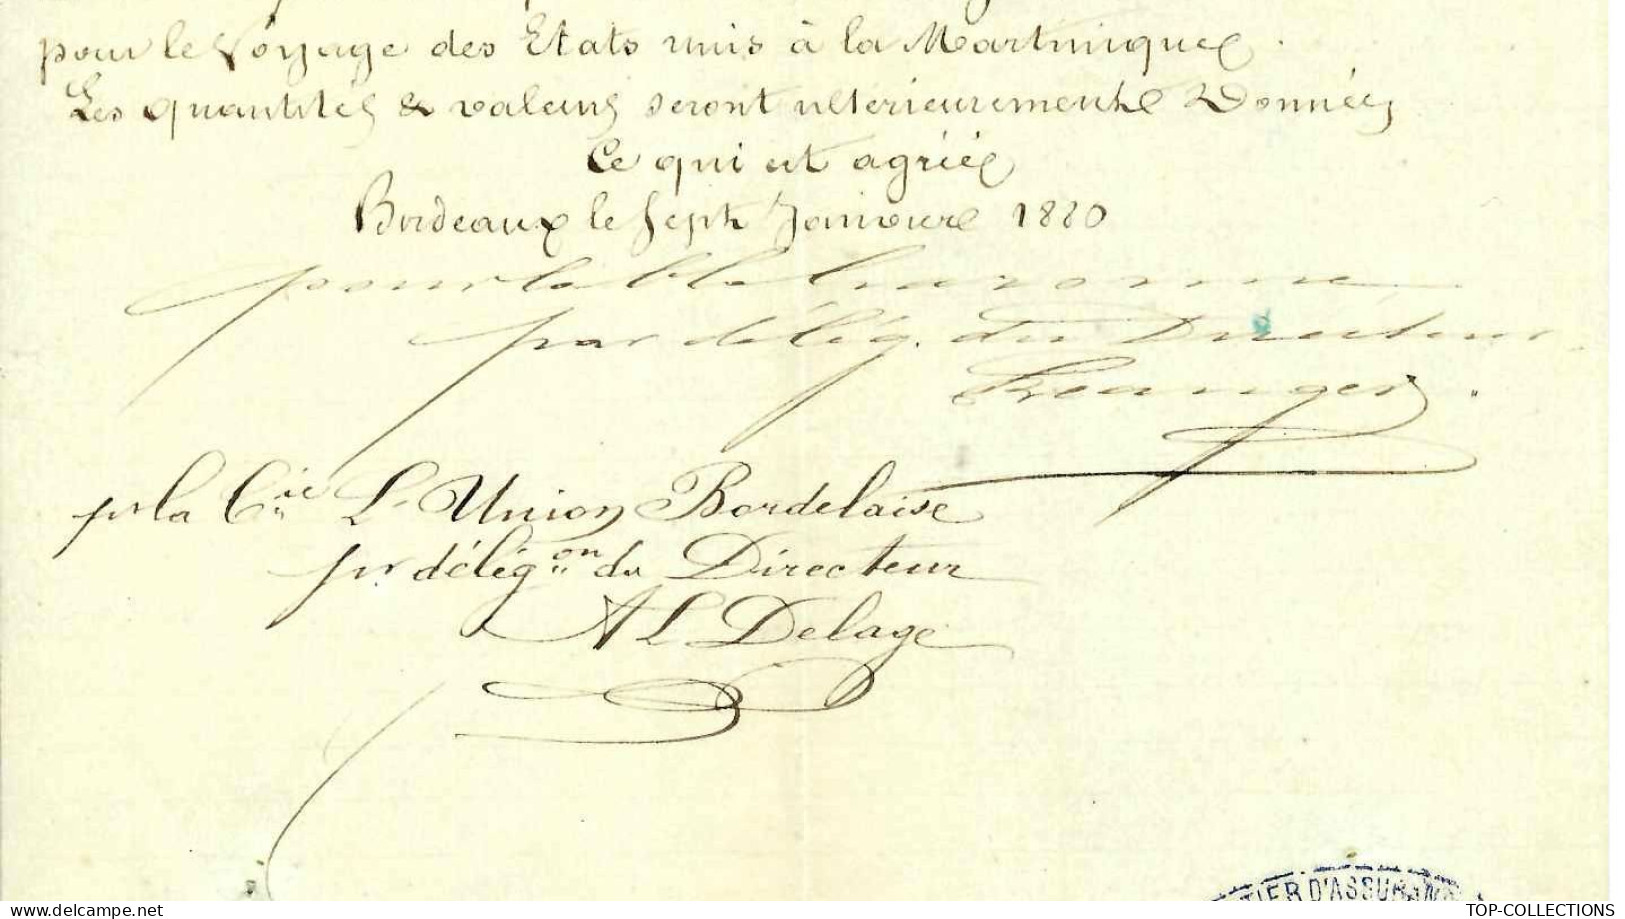 pour le Voyage des Etats unis à la Martinique.
Les quantités & valeurs seront ultérieurement Données
Ce qui est agréé
Bordeaux le Sept Janvier 1880
pour la
par délég. du Directeur
pr la Cie L'Union Bordelaise
pr délégon du Directeur
A L Delage
TIER D'ASSURAN
TOP-COLLECTIONS